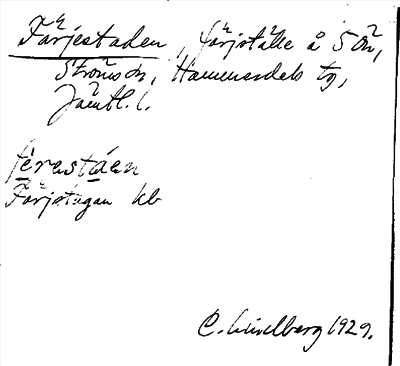 Färjestaden, färjställe å S ön,
Ströms sn, Hammerdals tg,
Jämtl. l.
fèrastáen
Färjstugan kb
C. Lindberg 1929.